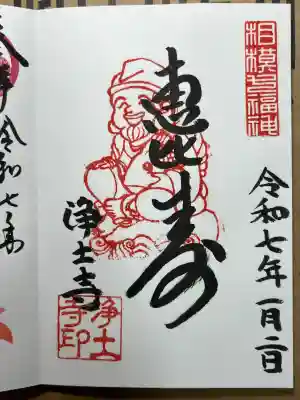 相模七福神
令和七年一月二日
恵比寿
浄土寺
浄土寺印
令和七年